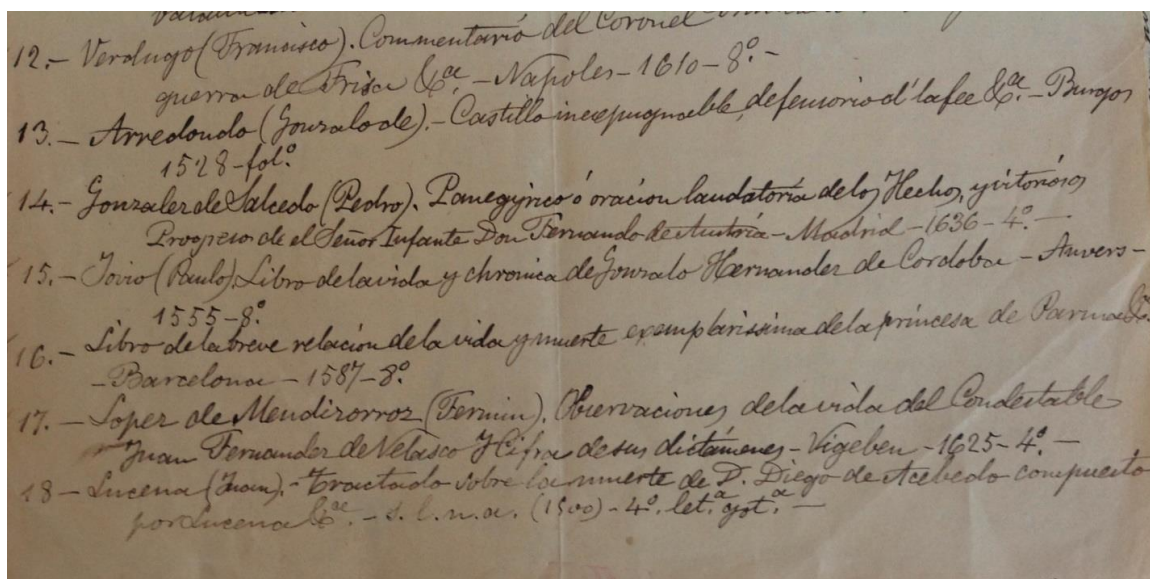 12.- Verdugo (Francisco). Commentario del Coronel
guerra de Frisa &ª. - Napoles - 1610 - 8º. -
13.- Arredondo (Gonzalo de). - Castillo inexpugnable, defensorio d'la fee &ª. - Burgos
1528 - folº.
14.- Gonzalez de Salcedo (Pedro). Panegyrico ó oracion laudatoria de los Hechos, y vitoriosos
Progresos de el Señor Infante Don Fernando de Austria - Madrid - 1636 - 4º. -
15.- Jovio (Paulo). Libro de la vida y chronica de Gonzalo Hernandez de Cordoba - Anvers -
1555 - 8º.
16.- Libro de la breve relacion de la vida y muerte exemplarissima de la princesa de Parma &ª.
- Barcelona - 1587 - 8º.
17. - Lopez de Mendizorroz (Fermin). Observaciones de la vida del Condestable
Juan Fernandez de Velasco Y Cifra de sus dictámenes - Vigeben - 1625 - 4º. -
18 - Lucena (Juan). - Tractado sobre la muerte de D. Diego de Acebedo compuesto
por Lucena &ª. - s. l. n. a. (1500) - 4º. let.ª got.ª -